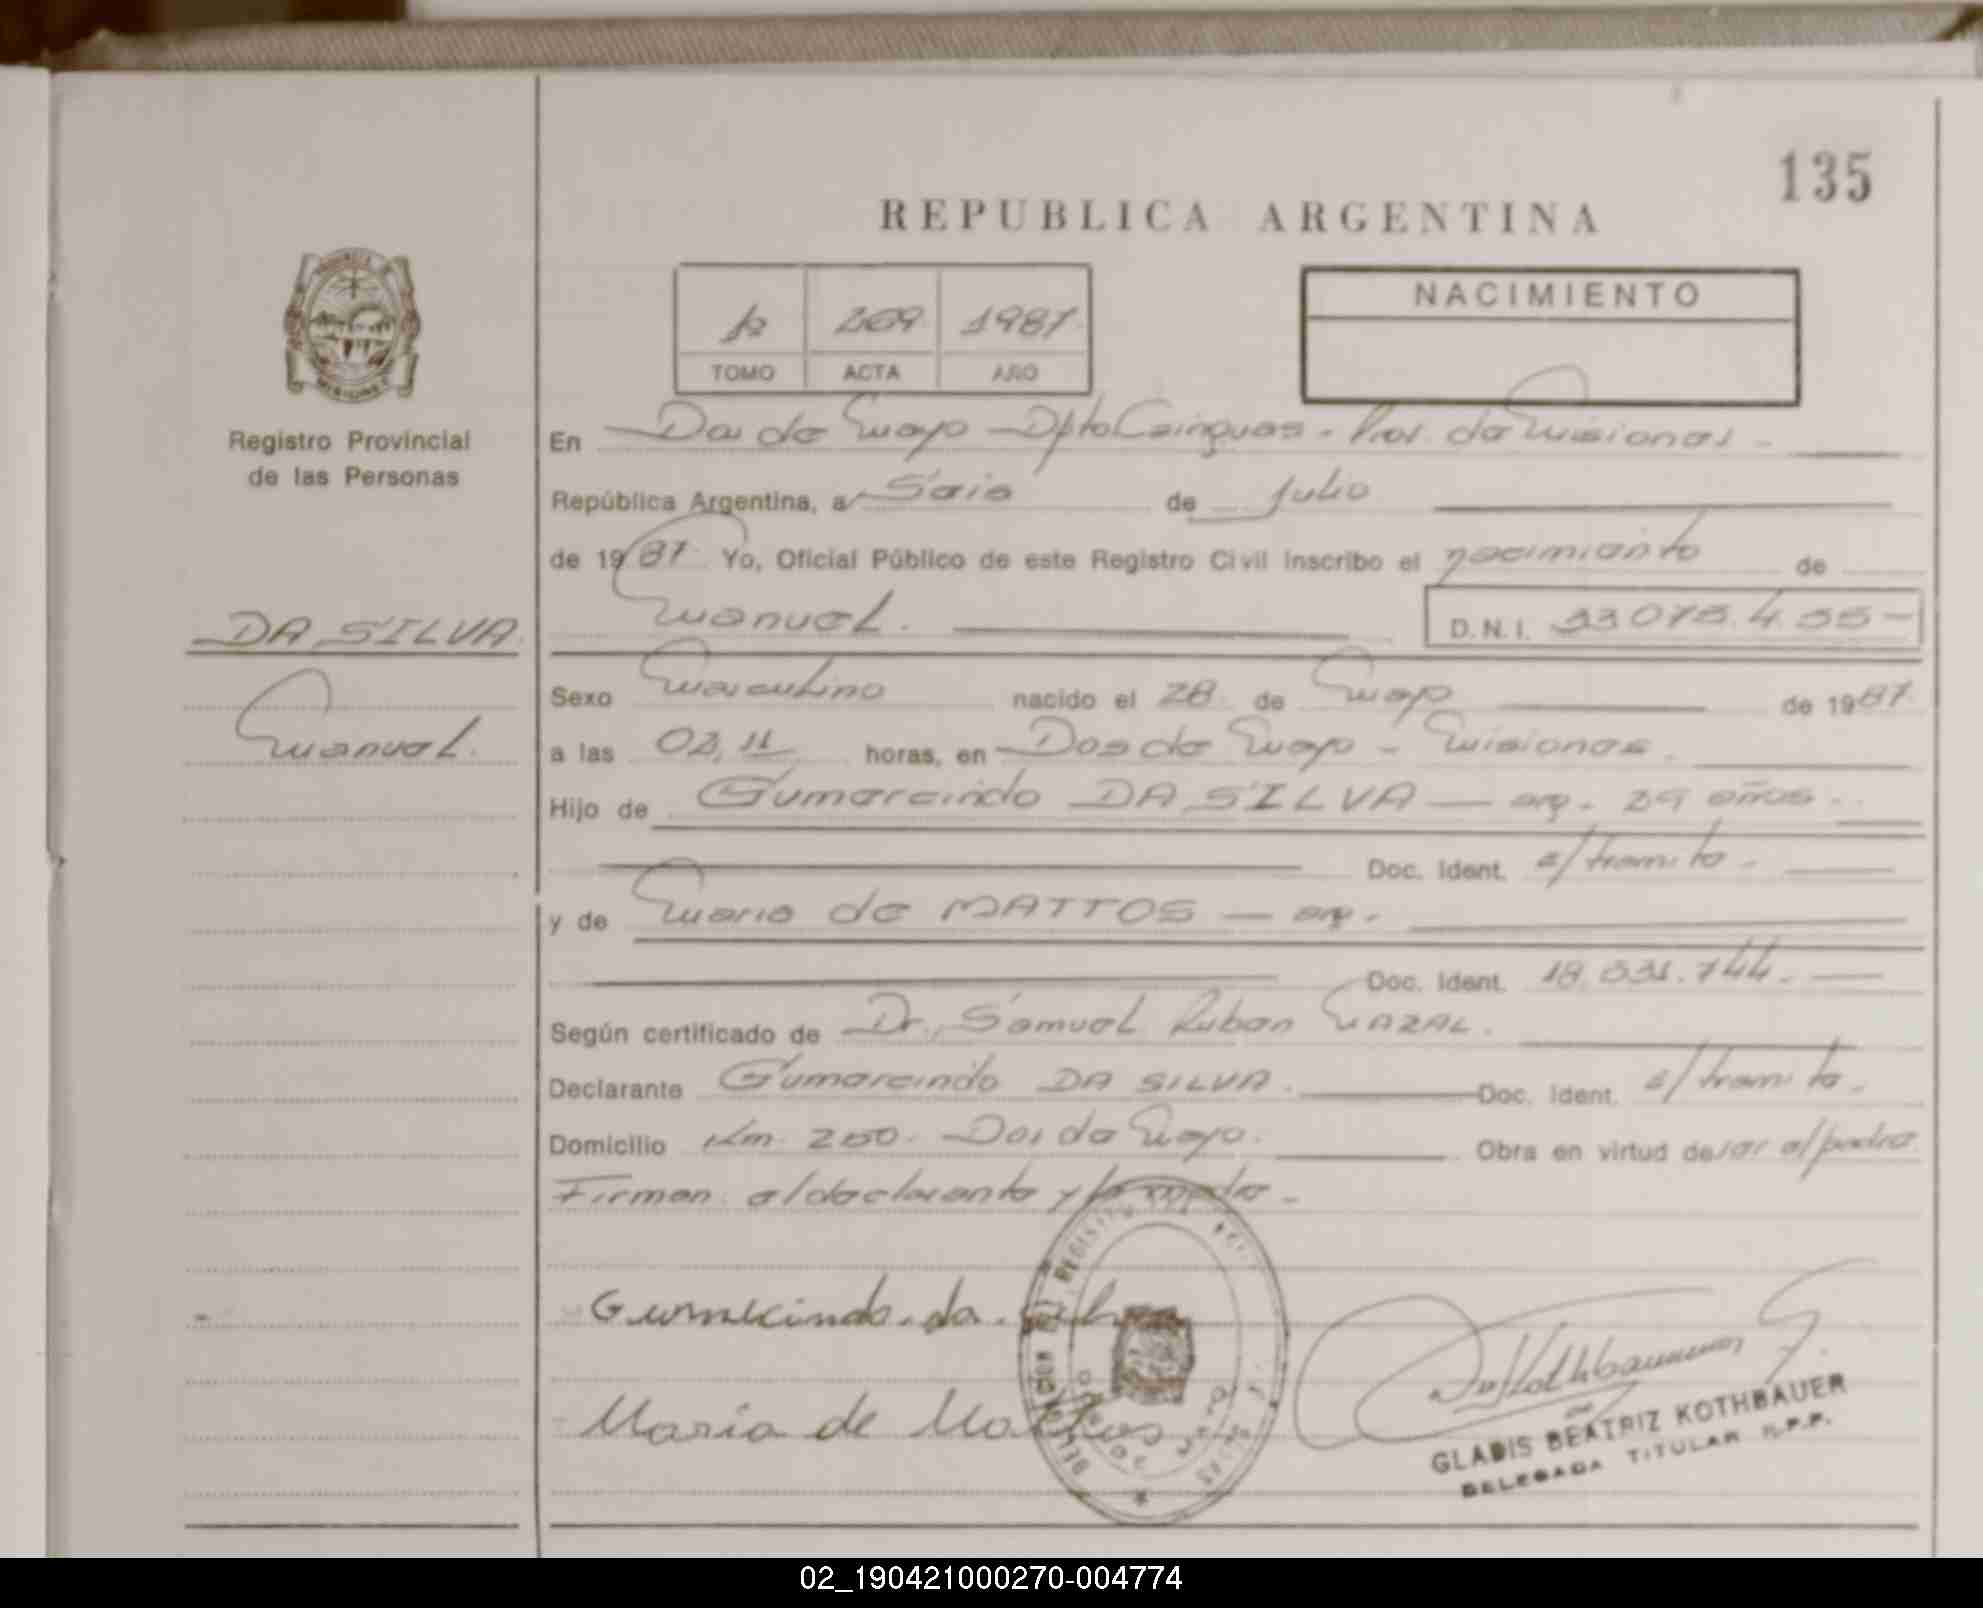 135
REPUBLICA ARGENTINA
269 1987
TOMO ACTA AÑO
NACIMIENTO
Registro Provincial
de las Personas
En Dos de Mayo - Dpto Cainguas - Prov. de Misiones -
República Argentina, a Seis de Julio
de 1987 Yo, Oficial Público de este Registro Civil inscribo el nacimiento de
Manuel.
D.N.I.
DA SILVA
Manuel.
Sexo Masculino nacido el 28 de Mayo de 1987
a las 02,11 horas, en Dos de Mayo - Misiones.
Hijo de Gumercindo DA SILVA — arg. 29 años.
Doc. Ident. e/tramite.
y de Maria de MATTOS — arg.
Doc. Ident.
Según certificado de Dr. Samuel Ruben MAZAL.
Declarante Gumercindo DA SILVA. Doc. Ident. e/tramite.
Domicilio Km. 250. Dos de Mayo. Obra en virtud de ser el padre
Firman el declarante y la madre -
Gumercindo da silva
Maria de Mattos
GLADIS BEATRIZ KOTHBAUER
DELEGADA TITULAR R.P.P.
02_190421000270-004774